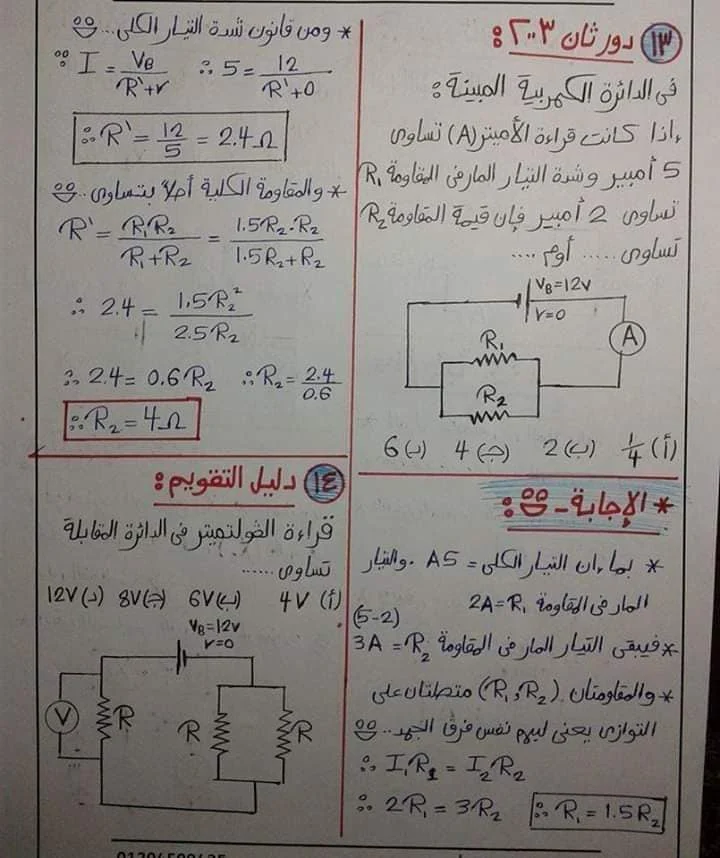 ١٣ دور ثان ٢٠٠٣ :
فى الدائرة الكهربية المبينة :
إذا كانت قراءة الأميتر (A) تساوى
5 أمبير وشدة التيار المار فى المقاومة R₁
تساوى 2 أمبير فإن قيمة المقاومة R₂
تساوى ..... أوم ....
V_B=12v
r=0
A
R₁
R₂
(أ) 1/4 (ب) 2 (ج) 4 (د) 6
* الإجابة - :
* بما إن التيار الكلى = A5 . والتيار
المار فى المقاومة R₁ = 2A
(5-2)
* فيبقى التيار المار فى المقاومة R₂ = 3A
* والمقاومتان (R₁ و R₂) متصلتان على
التوازى يعنى ليهم نفس فرق الجهد ..
∴ I₁R₁ = I₂R₂
∴ 2R₁ = 3R₂ ∴ R₁ = 1.5R₂
* ومن قانون شدة التيار الكلى ..
∵ I = V_B / (R'+r) ∴ 5 = 12 / (R'+0)
∴ R' = 12/5 = 2.4Ω
* والمقاومة الكلية أصلاً بتساوى ..
R' = R₁R₂ / (R₁+R₂) = 1.5R₂.R₂ / (1.5R₂+R₂)
∴ 2.4 = 1.5R₂² / 2.5R₂
∴ 2.4 = 0.6R₂ ∴ R₂ = 2.4/0.6
∴ R₂ = 4Ω
١٤ دليل التقويم :
قراءة الفولتميتر فى الدائرة المقابلة
تساوى ......
(أ) 4V (ب) 6V (ج) 8V (د) 12V
V_B=12v
r=0
V R R R